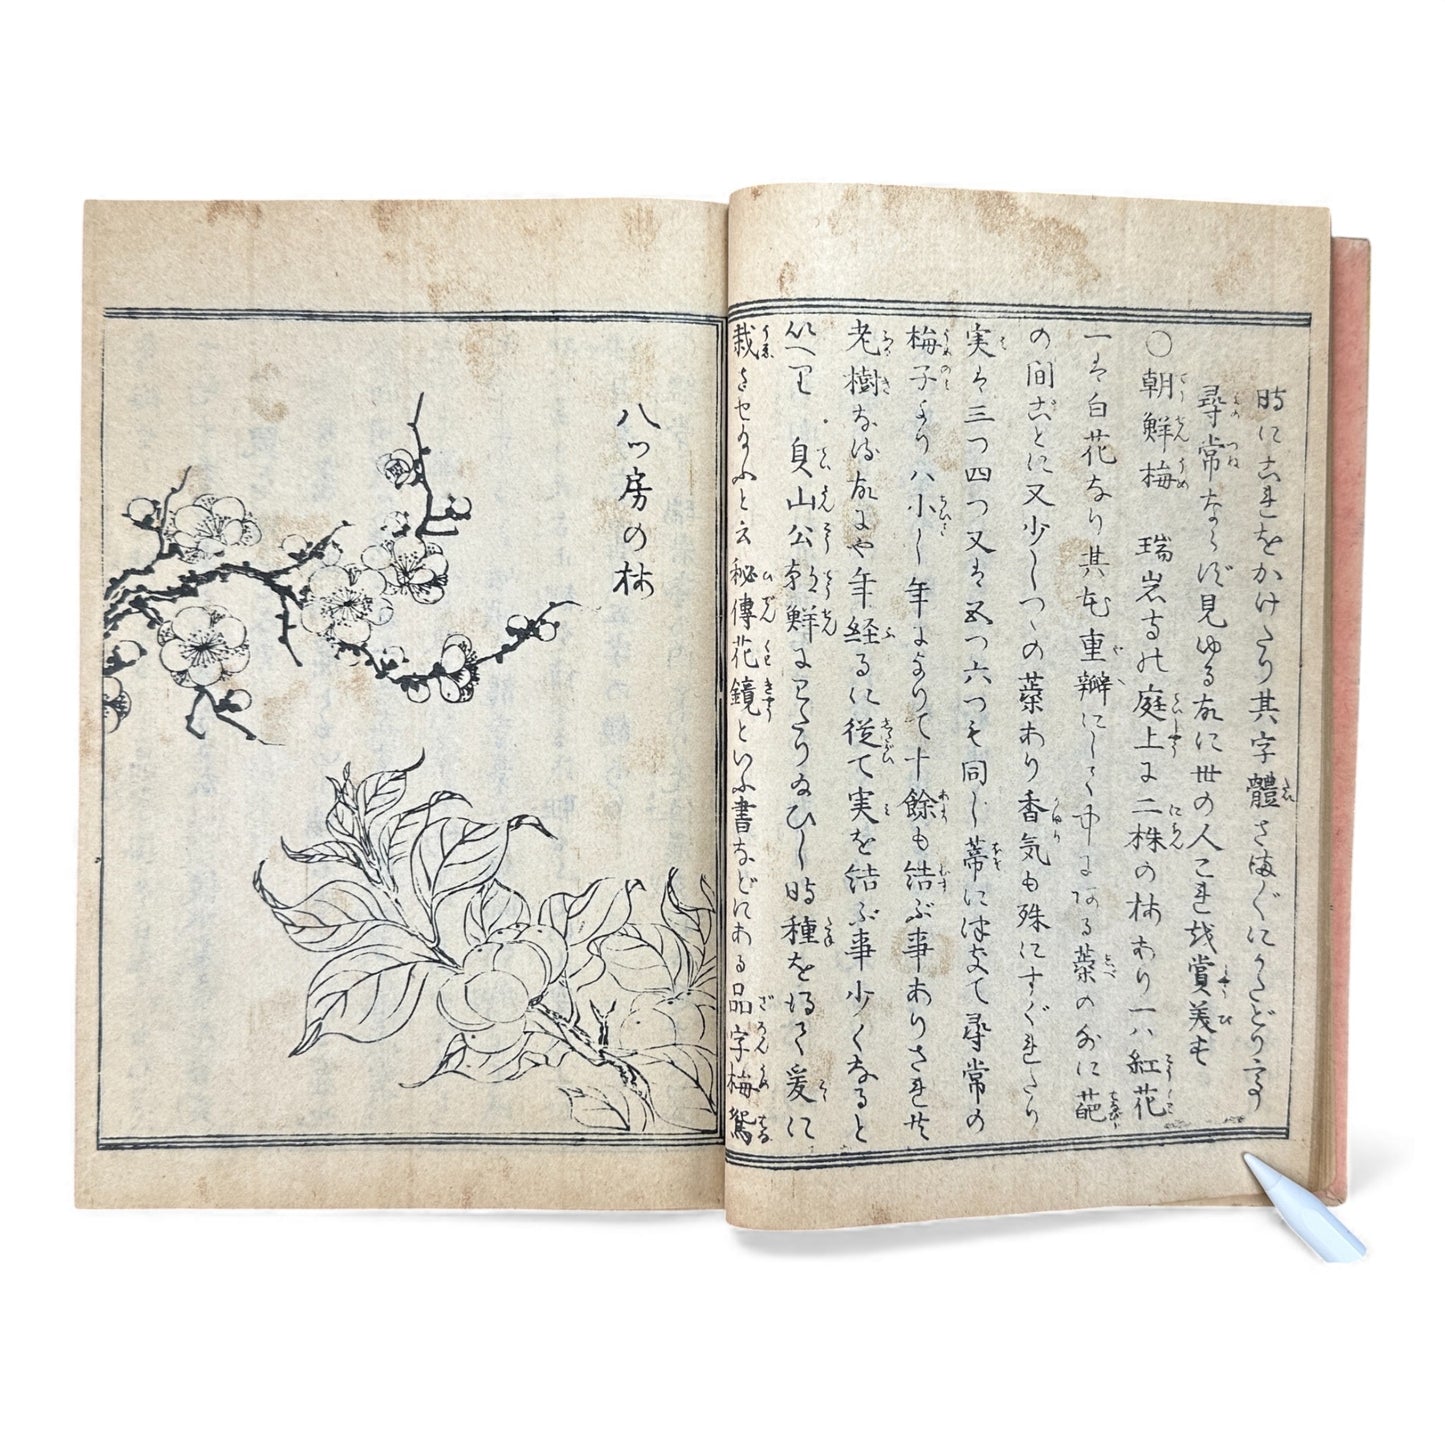 時にこれをかけたり其字體さまざまにかたどり
尋常ならず見ゆる故に世の人これを賞美す
○朝鮮梅　瑞岩寺の庭上に二株の梅あり一ハ紅花
一は白花なり其花重瓣にして中にある蘂の外に葩
の間ごとに又少しつゝの蘂あり香気も殊にすぐれたり
実は三つ四つ又は五つ六つも同じ蒂に
尋常の
梅子よりハ小し年によりて十餘も結ぶ事ありされ共
老樹なる故にや年経るに従て実を結ぶ事少くなると
いへり　貞山公朝鮮にわたりゐひし時種を得て爰に
栽させ給ふと云秘傳花鏡といふ書などにある品字梅鴛
八ッ房の梅